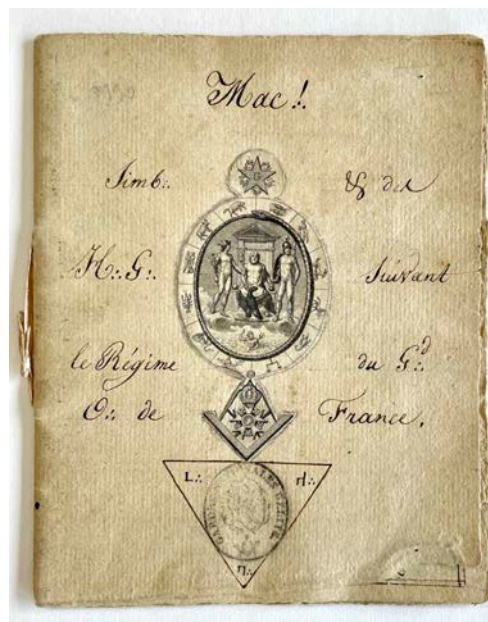 Mac∴
Simb∴ & des
H∴G∴ Suivant
le Régime du G∴d
O∴ de France.
G
L∴ H∴